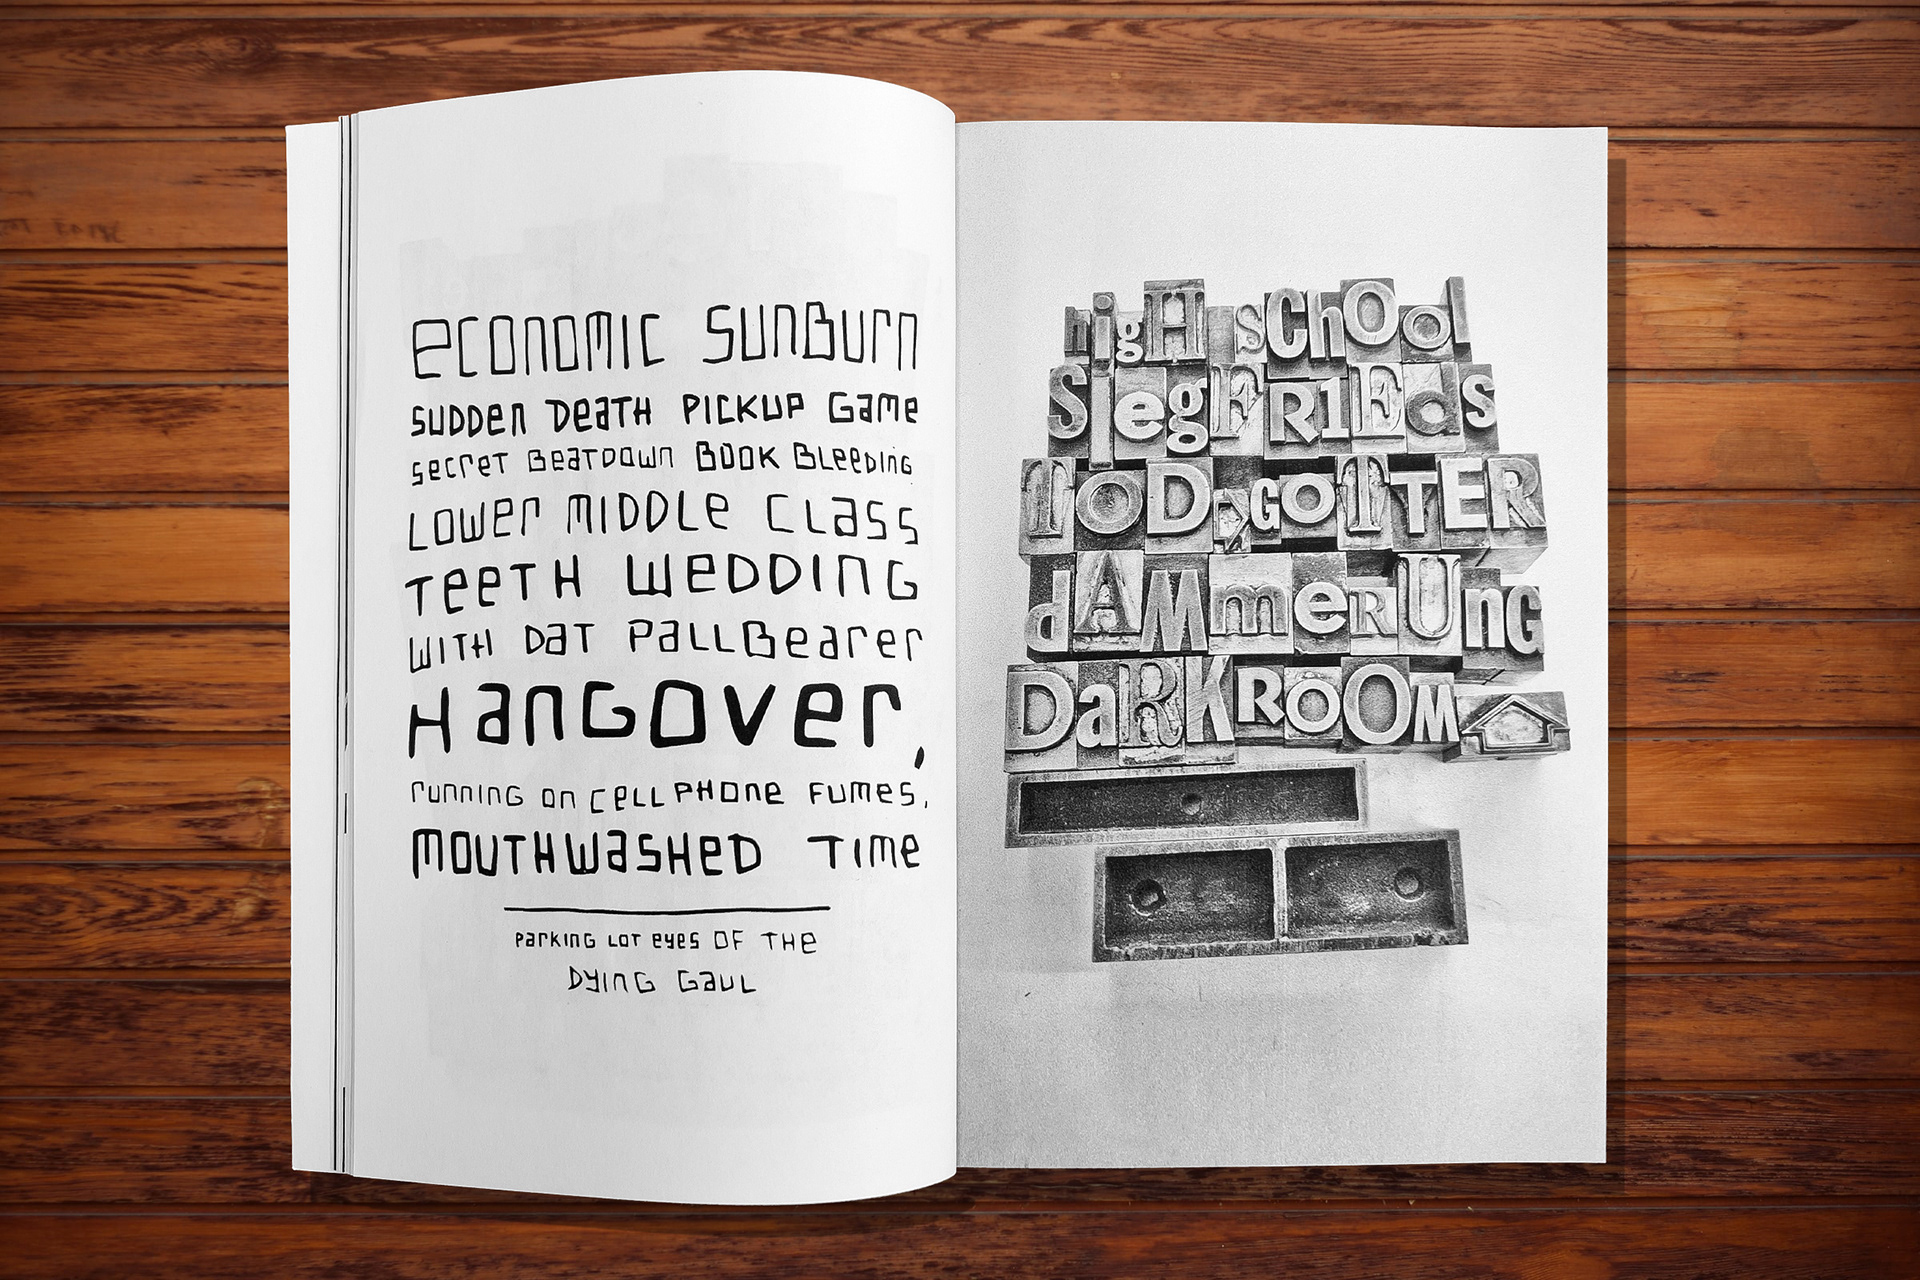 economic SunBurn
SUDDen DeaTH PICKUP Game
secreT BeaTDown BOOK BLeeDING
LOWer MIDDLe CLass
TeeTH WeDDInG
WITH DaT PaLLBearer
HanGOver,
running on CeLLPHOne Fumes,
mouTHWasHeD TIme
ParKInG LOT eyes OF THe
DyInG GauL
higH sChOol
SiegFRIEds
TOD GOTTER
dAMmeRUnG
DaRKROOM